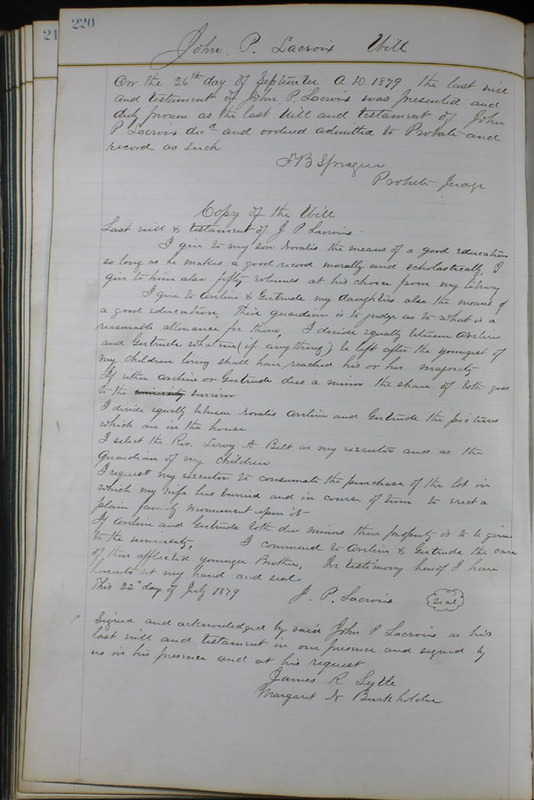 21
220
John. P. Lacroix Will
On the 26th day of September A D 1879 the last will
and testament of John P. Lacroix was presented and
duly proven as the last Will and testament of John
P Lacroix decd and ordered admitted to Probate and
record as such
F B Sprague
Probate Judge
Copy of the Will
Last will & testament of J P Lacroix.
I give to my son the means of a good education
so long as he makes a good record morally and scholastically I
give to him also fifty volumes at his choice from my library
I give to Arline & Gertrude my daughters also the means of
a good education, Their guardian is to judge as to what is a
reasonable allowance for them, I divide equally between Arline
and Gertrude whatever (if anything) be left after the youngest of
my children living shall have reached his or her majority
If either Arline or Gertrude dies a minor the share of both goes
to the university survivor
I divide equally between Arline and Gertrude the pictures
which are in the house
I select the Rev. Leroy A Belt as my executor and as the
guardian of my children
I request my executor to consumate the purchase of the lot in
which my wife lies buried and in course of time to erect a
plain family monument upon it
If Arline and Gertrude both die minors their property is to be given
to the university, I commend to Arline & Gertrude the care
of their afflicted younger Brother, In testimony hereof I have
hereunto set my hand and seal
This 22d day of July 1879 J. P. Lacroix Seal
Signed and acknowledged by said John P Lacroix as his
last will and testament in our presence and signed by
us in his presence and at his request
James R Lytle
Margaret N Burkholder